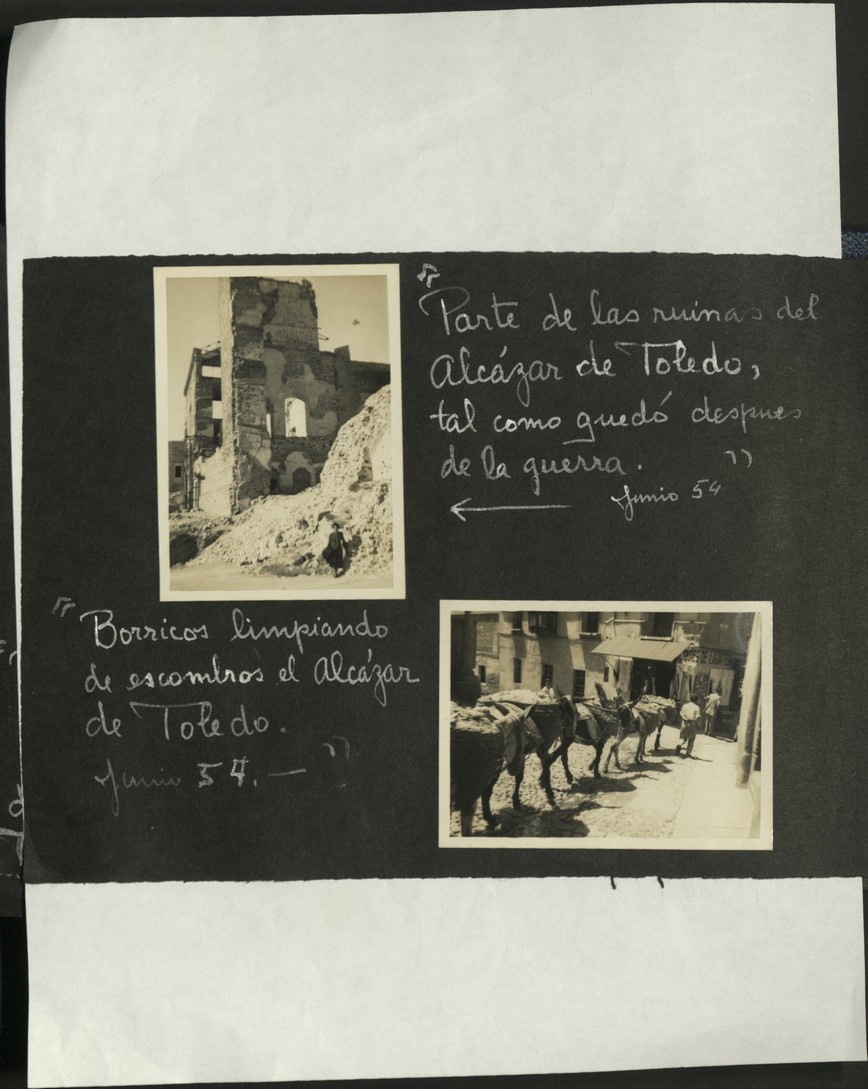 "Parte de las ruinas del
Alcázar de Toledo,
tal como quedó despues
de la guerra."
Junio 54
"Borricos limpiando
de escombros el Alcázar
de Toledo.
Junio 54.—"